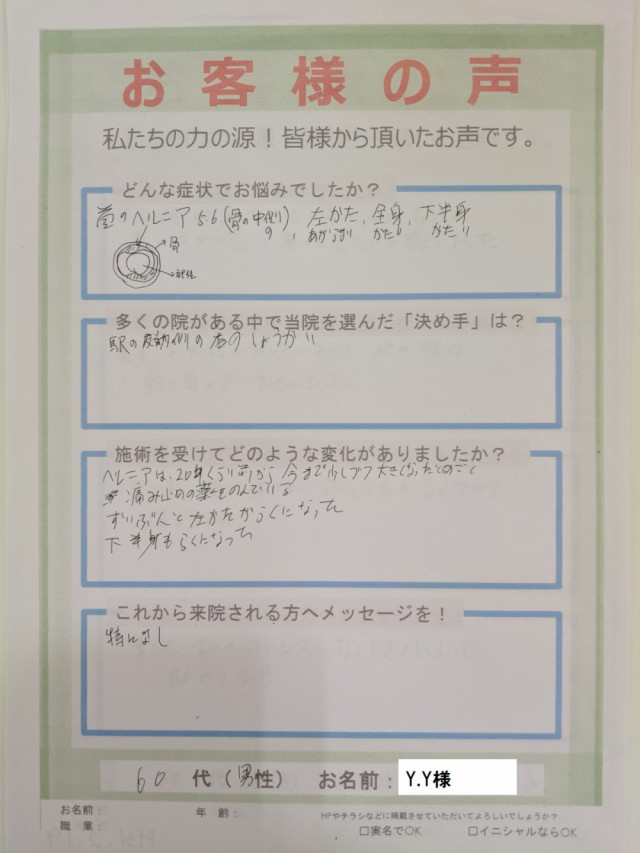 お客様の声
私たちの力の源!皆様から頂いたお声です。
どんな症状でお悩みでしたか?
首のヘルニア 5.6(骨の中側)、左かた、全身、下半身
の あがらない かたい かたい
骨
神経
多くの院がある中で当院を選んだ「決め手」は?
駅の 側の 者のしょうかい
施術を受けてどのような変化がありましたか?
ヘルニアは、20年くらい前から今まで少しづつ大きくなった
痛み止めの薬をのんでいる
ずいぶんと左かたがらくになった
下半身もらくになった
これから来院される方へメッセージを!
特になし
60 代(男性) お名前: Y.Y様
お名前: 年齢:
職業:
HPやチラシなどに掲載させていただいてよろしいでしょうか?
□実名でOK □イニシャルならOK